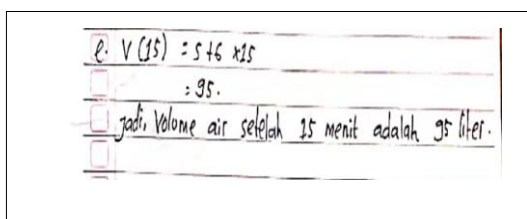 e. V (15) = 5+6 x15
= 95.
Jadi, Volume air setelah 15 menit adalah 95 liter.